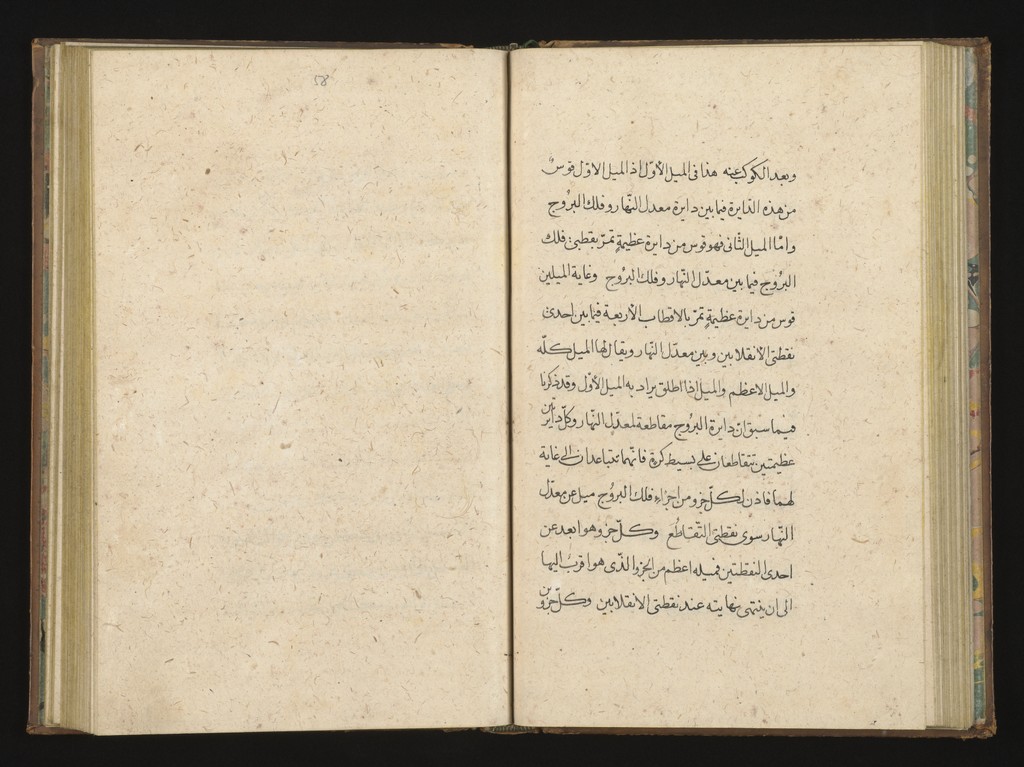 58
وبعد الكوكب عنه هذا فى الميل الأوّل اذ الميل الاوّل قوسٌ
من هذه الدّايرة فيما بين دايرة معدل النّهار وفلك البرُوج
وامّا الميل الثّانى فهو قوس من دايرة عظيمةٍ تمرّ بقطبى فلك
البرُوج فيما بين معدّل النّهار وفلك البرُوج وغاية الميلين
قوس من دايرة عظيمةٍ تمرّ بالاقطاب الأربعة فيما بين احدى
نقطتى الانقلابين وبين معدّل النّهار ويقال لها الميل كلّه
والميل الاعظم والميل اذا اطلق يراد به الميل الأوّل وقد ذكرنا
فيما سبق انّ دايرة البرُوج مقاطعة لمعدّل النّهار وكلّ دائرتين
عظيمتين تتقاطعان على بسيط كرة فانّهما تتباعدان الى غاية
لهما فاذن لكلّ جزو من اجزاء فلك البرُوج ميل عن معدّل
النّهار سوى نقطتى التّقاطُع وكلّ جزو هو ابعد عن
احدى النقطتين فميله اعظم من الجزو الّذى هو اقرب اليها
الى ان ينتهى نهايته عند نقطتى الانقلابين وكلّ جزوين